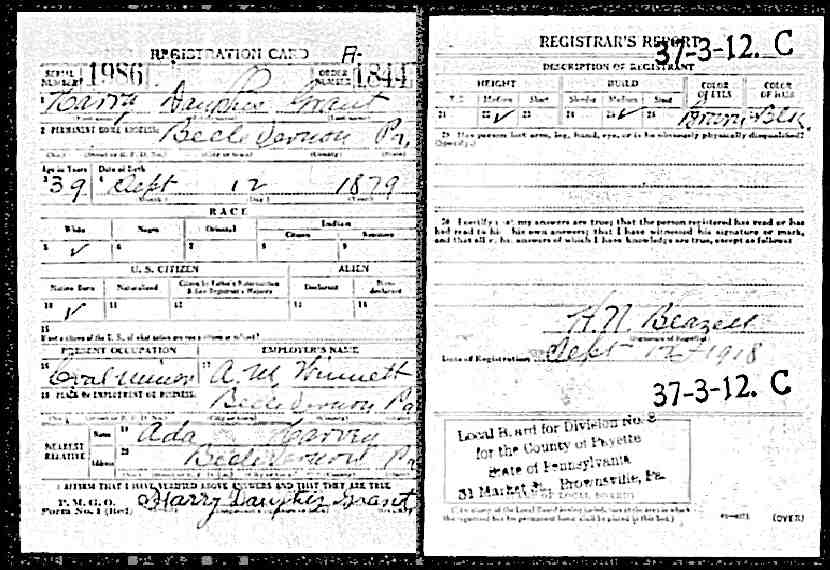 REGISTRATION CARD
SERIAL NUMBER 1986
ORDER NUMBER 1844
1 Harry Grant
2 PERMANENT HOME ADDRESS: Belle Vernon Pa.
Age in Years Date of Birth
3 39 4 Sept 12 1879
RACE
White Negro Oriental Indian
Citizen Noncitizen
5 ✓ 6 7 8 9
U. S. CITIZEN ALIEN
Native Born Naturalized Citizen by Father's Naturalization Before Registrant's Majority Declarant Non-declarant
10 ✓ 11 12 13 14
15
If not a citizen of the U. S., of what nation are you a citizen or subject?
PRESENT OCCUPATION EMPLOYER'S NAME
16 Coal miner 17 A. M.
18 PLACE OF EMPLOYMENT OR BUSINESS:
Belle Vernon Pa
NEAREST RELATIVE
Name 19 Ada
Address 20 Belle Vernon Pa
I AFFIRM THAT I HAVE VERIFIED ABOVE ANSWERS AND THAT THEY ARE TRUE
P. M. G. O.
Form No. 1 (Red)
Harry Grant
REGISTRAR'S REPORT
37-3-12. C
DESCRIPTION OF REGISTRANT
HEIGHT BUILD COLOR OF EYES COLOR OF HAIR
Tall Medium Short Slender Medium Stout
21 22 ✓ 23 24 25 ✓ 26 Brown
29 Has person lost arm, leg, hand, eye, or is he obviously physically disqualified?
(Specify.)
30 I certify that my answers are true; that the person registered has read or has
had read to him his own answers; that I have witnessed his signature or mark,
and that all of his answers of which I have knowledge are true, except as follows:
H. N. Beazell
(Signature of Registrar)
Date of Registration Sept 12 1918
37-3-12. C
Local Board for Division No. 2
for the County of Fayette
State of Pennsylvania
31 Market St., Brownsville, Pa.
(OVER)